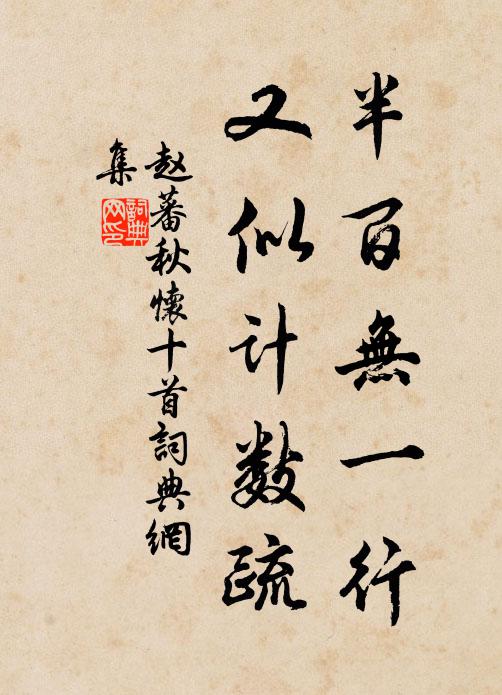 半百無一行
又似计數疏
赵蕃秋懷十首詞典網
集
詞典
网印